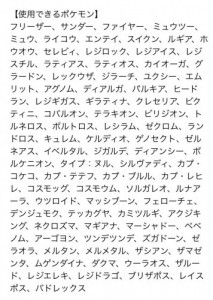 【使用できるポケモン】
フリーザー、サンダー、ファイヤー、ミュウツー、
ミュウ、ライコウ、エンテイ、スイクン、ルギア、ホ
ウオウ、セレビィ、レジロック、レジアイス、レジ
スチル、ラティアス、ラティオス、カイオーガ、グ
ラードン、レックウザ、ジラーチ、ユクシー、エム
リット、アグノム、ディアルガ、パルキア、ヒード
ラン、レジギガス、ギラティナ、クレセリア、ビク
ティニ、コバルオン、テラキオン、ビリジオン、ト
ルネロス、ボルトロス、レシラム、ゼクロム、ラン
ドロス、キュレム、ケルディオ、ゲノセクト、ゼル
ネアス、イベルタル、ジガルデ、ディアンシー、ボ
ルケニオン、タイプ：ヌル、シルヴァディ、カプ・
コケコ、カプ・テテフ、カプ・ブルル、カプ・レヒ
レ、コスモッグ、コスモウム、ソルガレオ、ルナア
ーラ、ウツロイド、マッシブーン、フェローチェ、
デンジュモク、テッカグヤ、カミツルギ、アクジキ
ング、ネクロズマ、マギアナ、マーシャドー、ベベ
ノム、アーゴヨン、ツンデツンデ、ズガドーン、ゼ
ラオラ、メルタン、メルメタル、ザシアン、ザマゼ
ンタ、ムゲンダイナ、ダクマ、ウーラオス、ザルー
ド、レジエレキ、レジドラゴ、ブリザポス、レイス
ポス、バドレックス